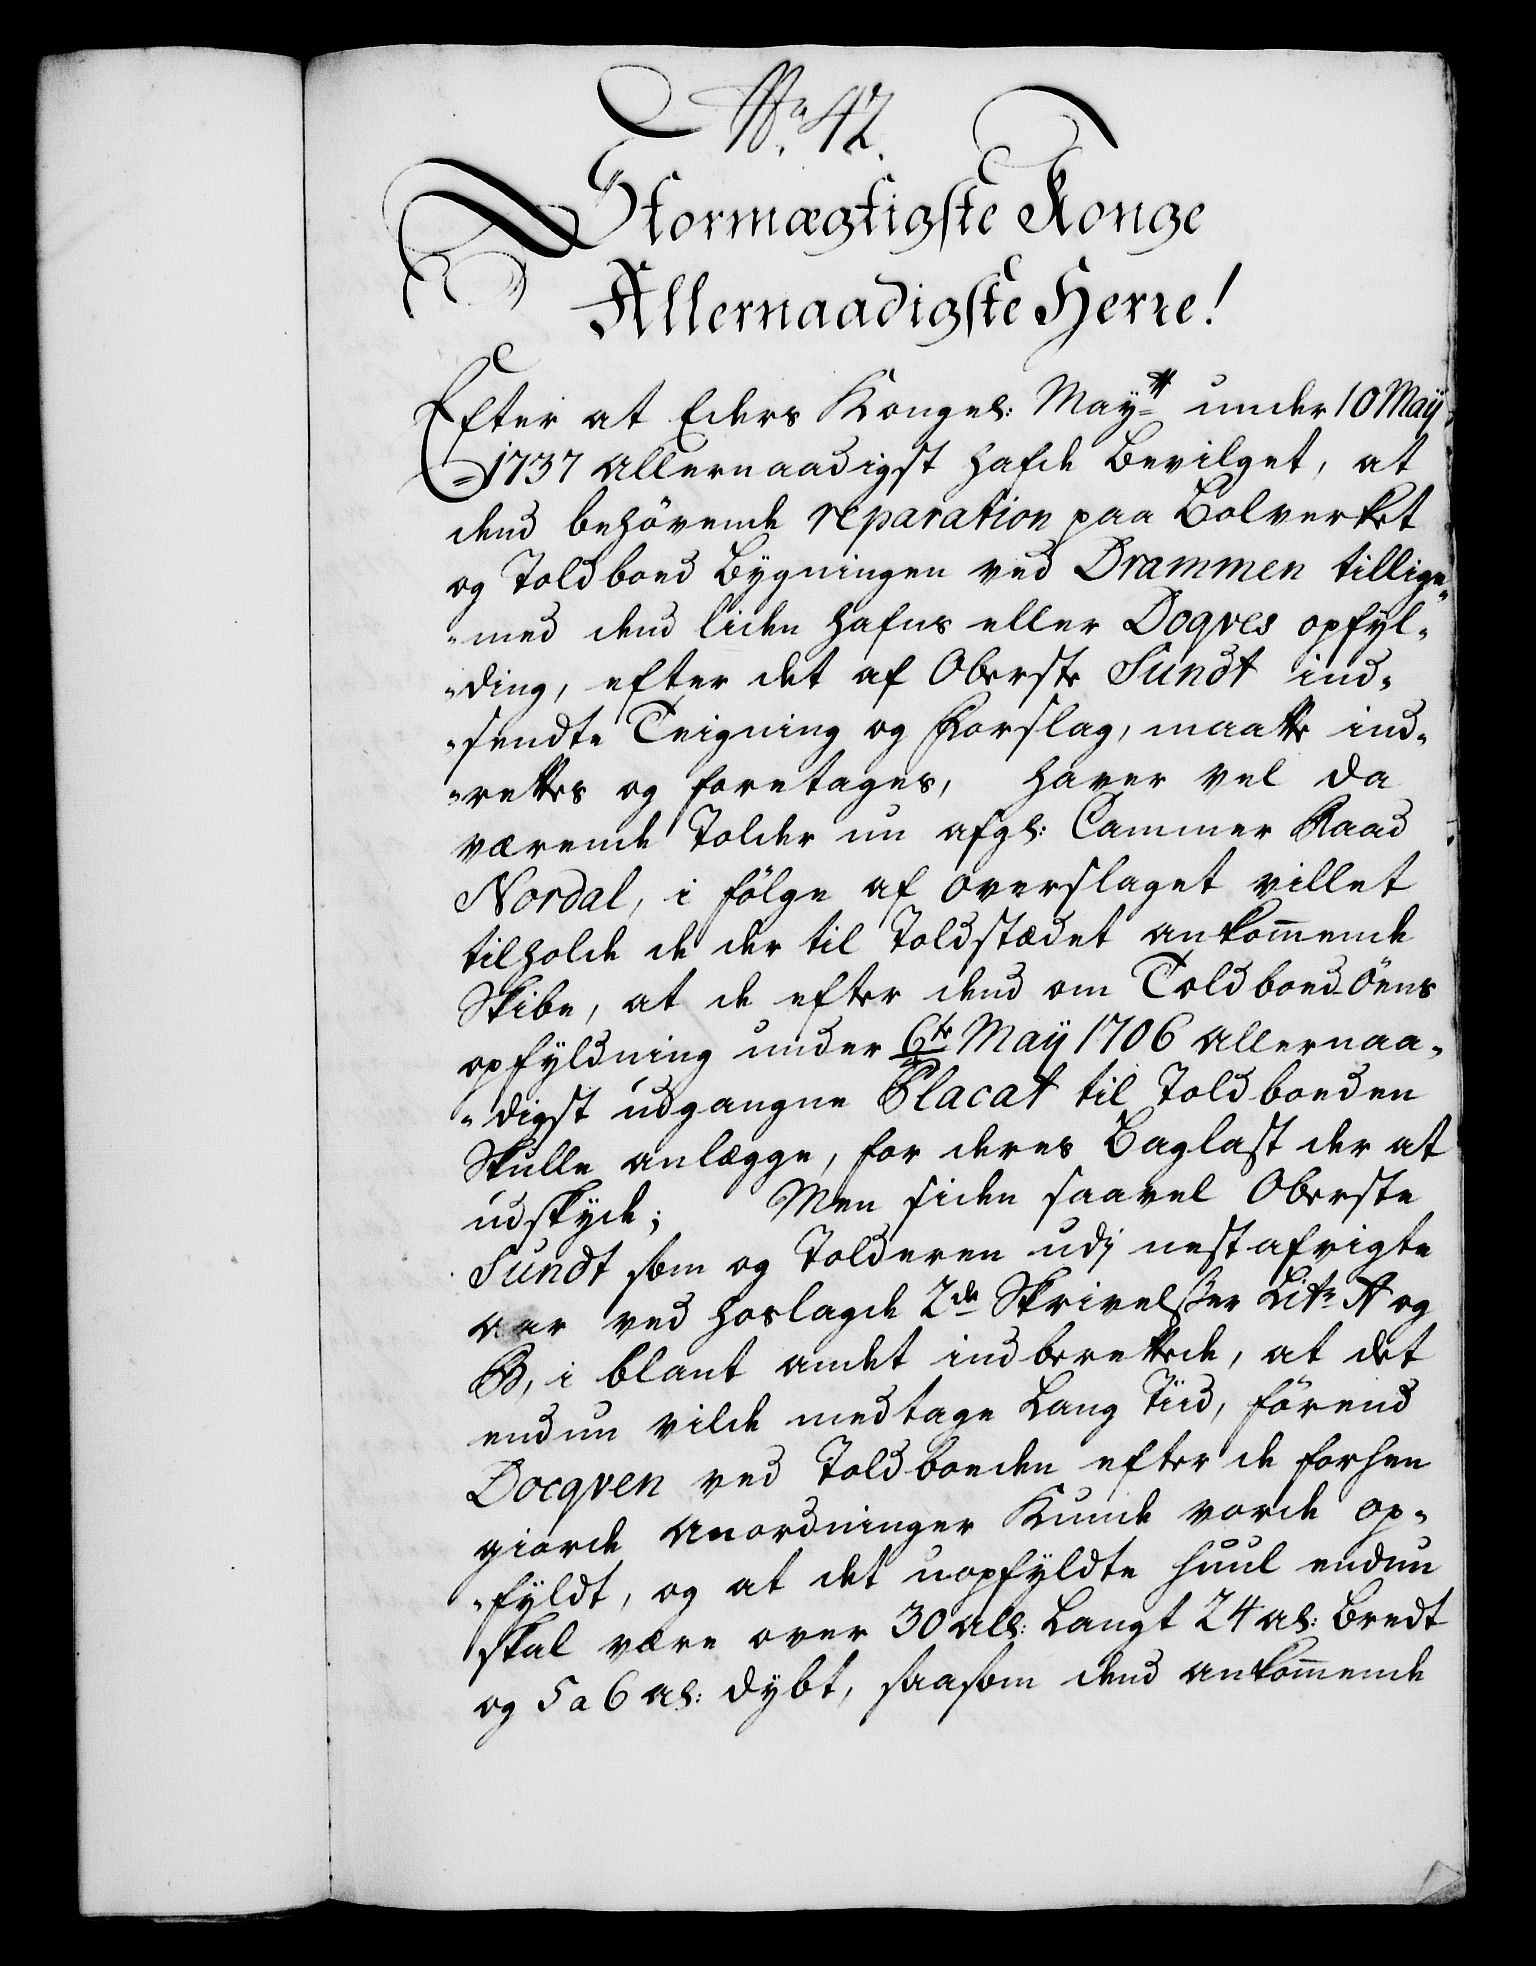 No. 42.
Stormægtigste Konge
Allernaadigste Herre!
Efter at Eders Kongel: Mayt: under 10 Maÿ
1737 allernaadigst hafde bevilget, at
dend behövende reparation paa Bolverket
og Toldboed bÿgningen ved Drammen tillige-
-med dend liden Hafns eller Doqves opfÿl-
-ding, efter det af Oberste Sundt ind-
-sendte Teigning og Forslag, maatte ind-
-rettes og foretages, haver vel da
værende Tolder nu afgl: Cammer Raad
Nordal, i fölge af overslaget villet
tilholde de der til Toldstædet ankom̄ende
Skibe, at de efter dend om Toldboed-Öens
opfÿldning under 6te Maÿ 1706 allernaa-
-digst udgangne Placat til Toldboeden
Skulle anlægge, for deres Baglast der at
udskyde; Men siden saavel Oberste
Sundt som og Tolderen udj nestafvigte
aar ved hoslagde 2de Skrivelsser Litr A og
B, i blant andet indberettede, at det
endnu vilde medtage Lang Tiid, förend
Docqven ved Toldboeden efter de forhen
giorde anordninger Kunde vorde op-
-fÿldt, og at det uopfÿldte Huul endnu
skal være over 30 all: Langt 24 al: bredt
og 5 a 6 al: dybt, saasom dend ankom̄ende